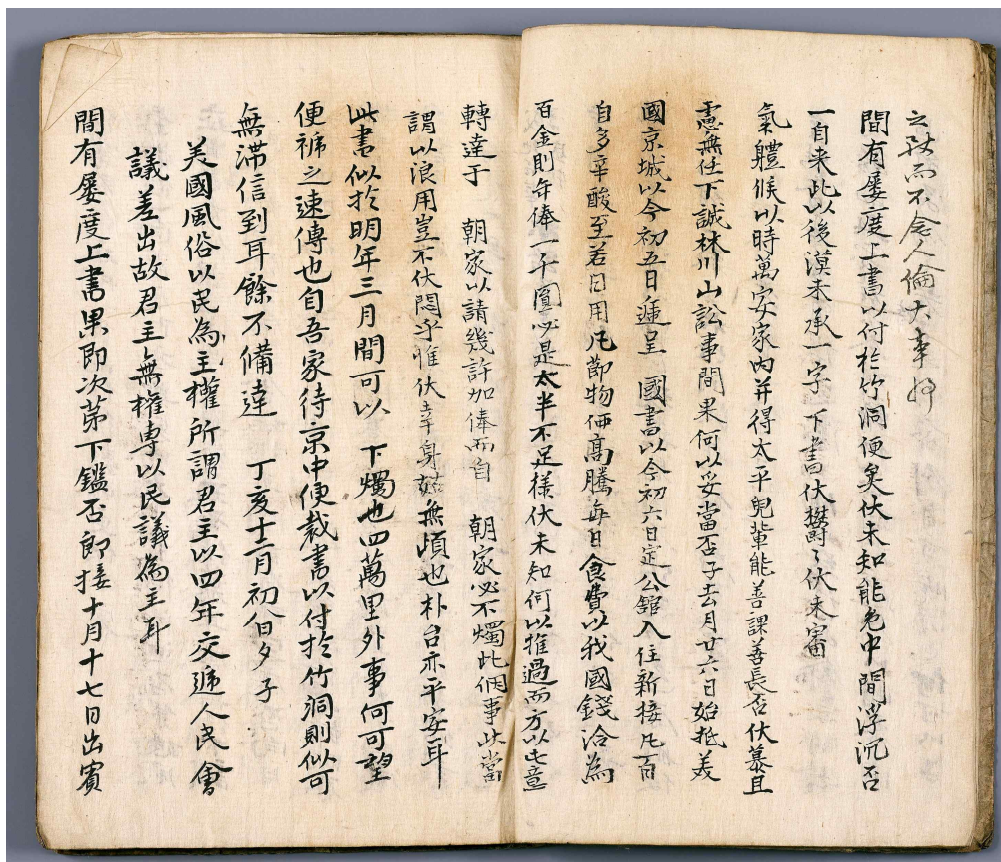 之訣而不念人倫大事好
間有屡度上書以付於竹洞便矣伏未知能免中間浮沉否
一自来此以後漠未承一字 下書伏欝〻伏未審
氣軆候以時萬安家内并得太平兒輩能善課善長否伏慕且
慮無任下誠林川山訟事間果何以妥當否子去月廿六日始抵美
國京城以今初五日逓呈 國書以今初六日定公館入住新接凡百
自多辛酸至若日用凡節物価高騰每日食費以我國錢洽為
百金則年俸一千圓必是太半不足樣伏未知何以推過而方以此意
轉達于 朝家以請幾許加俸而自 朝家必不燭此個事此當
謂以浪用豈不伏悶乎惟伏幸身姑無頉也朴台亦平安耳
此書似於明年三月間可以 下燭也四萬里外事何可望
便褫之速傳也自吾家待京中便裁書以付於竹洞則似可
無滞信到耳餘不備達 丁亥十二月初 夕子
美國風俗以民為主權所謂君主以四年交逓人民會
議差出故君主無權専以民議為主耳
間有屡度上書果即次苐下鑑否郎接十月十七日出賓